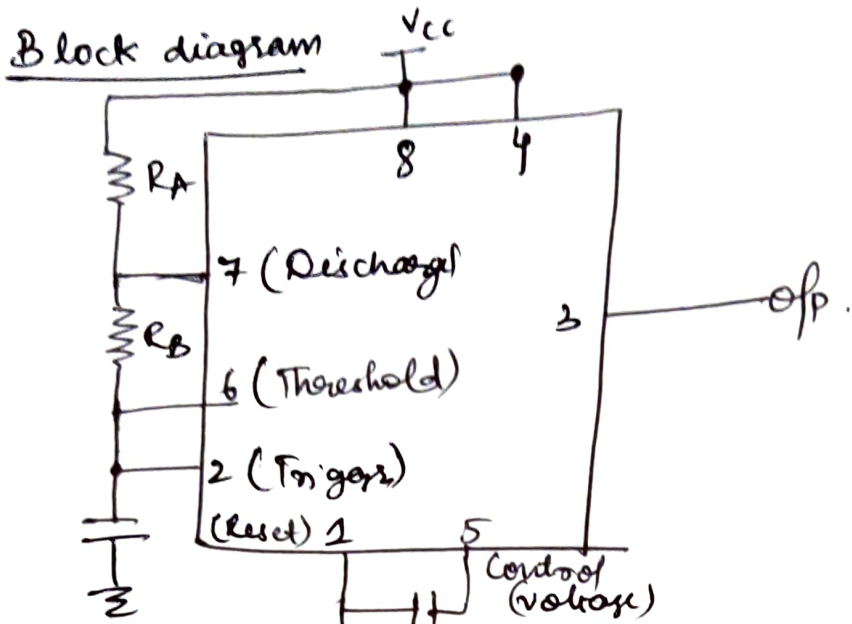 Block diagram
Vcc
8
4
RA
7 (Discharge)
RB
3
o/p.
6 (Threshold)
2 (Trigger)
(Reset) 1
5
Control
(voltage)